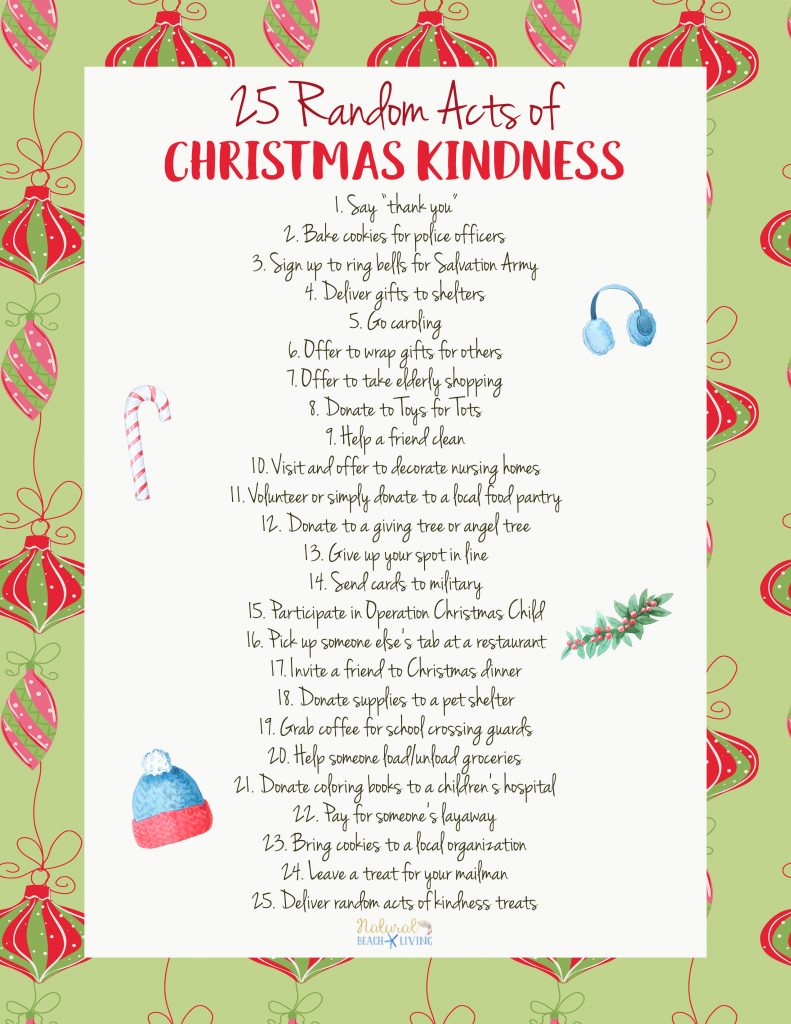 25 Random Acts of
CHRISTMAS KINDNESS
1. Say "thank you"
2. Bake cookies for police officers
3. Sign up to ring bells for Salvation Army
4. Deliver gifts to shelters
5. Go caroling
6. Offer to wrap gifts for others
7. Offer to take elderly shopping
8. Donate to Toys for Tots
9. Help a friend clean
10. Visit and offer to decorate nursing homes
11. Volunteer or simply donate to a local food pantry
12. Donate to a giving tree or angel tree
13. Give up your spot in line
14. Send cards to military
15. Participate in Operation Christmas Child
16. Pick up someone else's tab at a restaurant
17. Invite a friend to Christmas dinner
18. Donate supplies to a pet shelter
19. Grab coffee for school crossing guards
20. Help someone load/unload groceries
21. Donate coloring books to a children's hospital
22. Pay for someone's layaway
23. Bring cookies to a local organization
24. Leave a treat for your mailman
25. Deliver random acts of kindness treats
Natural
BEACH LIVING